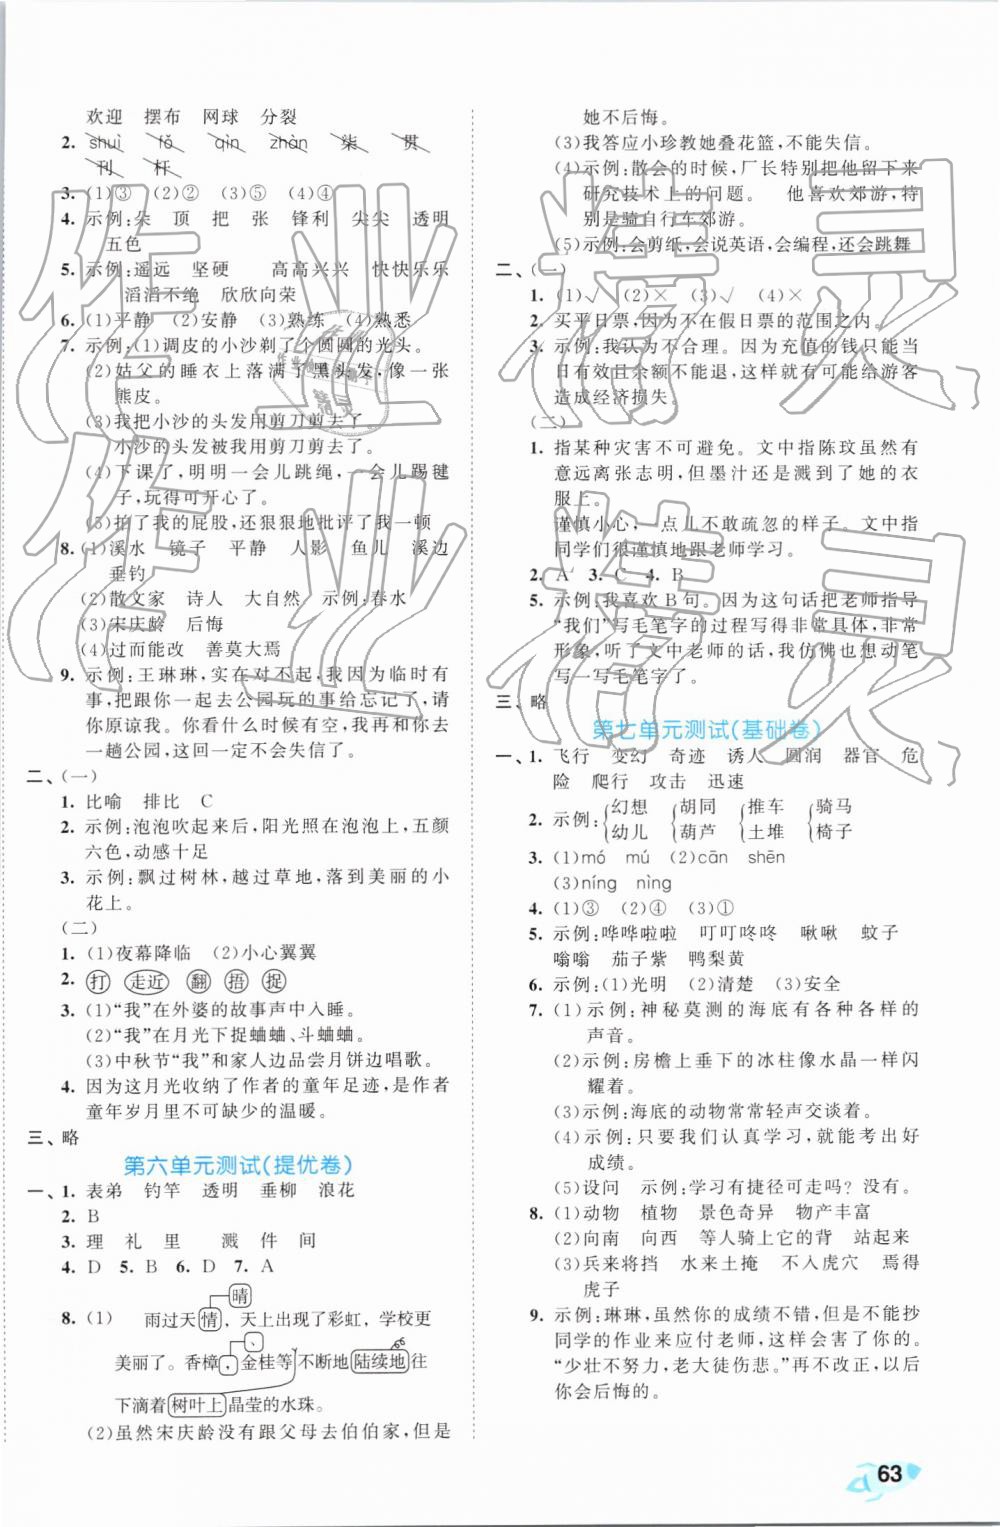 欢迎 摆布 网球 分裂
2. shuì fǒ qìn zhàn 柒 贯
刊 杆
3. (1)③ (2)② (3)⑤ (4)④
4. 示例:朵 顶 把 张 锋利 尖尖 透明
五色
5. 示例:遥远 坚硬 高高兴兴 快快乐乐
滔滔不绝 欣欣向荣
6. (1)平静 (2)安静 (3)熟练 (4)熟悉
7. 示例:(1)调皮的小沙剃了个圆圆的光头。
(2)姑父的睡衣上落满了黑头发,像一张
熊皮。
(3)我把小沙的头发用剪刀剪去了。
小沙的头发被我用剪刀剪去了。
(4)下课了,明明一会儿跳绳,一会儿踢毽
子,玩得可开心了。
(5)拍了我的屁股,还狠狠地批评了我一顿
8. (1)溪水 镜子 平静 人影 鱼儿 溪边
垂钓
(2)散文家 诗人 大自然 示例:春水
(3)宋庆龄 后悔
(4)过而能改 善莫大焉
9. 示例:王琳琳,实在对不起,我因为临时有
事,把跟你一起去公园玩的事给忘记了,请
你原谅我。你看什么时候有空,我和你再去
一趟公园,这回一定不会失信了。
二、(一)
1. 比喻 排比 C
2. 示例:泡泡吹起来后,阳光照在泡泡上,五颜
六色,动感十足
3. 示例:飘过树林,越过草地,落到美丽的小
花上。
(二)
1. (1)夜幕降临 (2)小心翼翼
2. 打 走近 翻 捂 捉
3. (1)“我”在外婆的故事声中入睡。
(2)“我”在月光下捉蛐蛐、斗蛐蛐。
(3)中秋节“我”和家人边品尝月饼边唱歌。
4. 因为这月光收纳了作者的童年足迹,是作者
童年岁月里不可缺少的温暖。
三、略
第六单元测试(提优卷)
一、1. 表弟 钓竿 透明 垂柳 浪花
2. B
3. 理 礼 里 溅 件 间
4. D 5. B 6. D 7. A
晴
8. (1) 雨过天情,天上出现了彩虹,学校更
、
美丽了。香樟,金桂等不断地陆续地往
下滴着树叶上晶莹的水珠。
(2)虽然宋庆龄没有跟父母去伯伯家,但是
她不后悔。
(3)我答应小珍教她叠花篮,不能失信。
(4)示例:散会的时候,厂长特别把他留下来
研究技术上的问题。 他喜欢郊游,特
别是骑自行车郊游。
(5)示例:会剪纸,会说英语,会编程,还会跳舞
二、(一)
1. (1)√ (2)× (3)√ (4)×
2. 买平日票,因为不在假日票的范围之内。
3. 示例:我认为不合理。因为充值的钱只能当
日有效且余额不能退,这样就有可能给游客
造成经济损失。
(二)
1. 指某种灾害不可避免。文中指陈玟虽然有
意远离张志明,但墨汁还是溅到了她的衣
服上。
谨慎小心,一点儿不敢疏忽的样子。文中指
同学们很谨慎地跟老师学习。
2. A 3. C 4. B
5. 示例:我喜欢B句。因为这句话把老师指导
“我们”写毛笔字的过程写得非常具体,非常
形象,听了文中老师的话,我仿佛也想动笔
写一写毛笔字了。
三、略
第七单元测试(基础卷)
一、1. 飞行 变幻 奇迹 诱人 圆润 器官 危
险 爬行 攻击 迅速
2. 示例: 幻想 胡同 推车 骑马
幼儿 葫芦 土堆 椅子
3. (1)mó mú (2)cān shēn
(3)níng nìng
4. (1)③ (2)④ (3)①
5. 示例:哗哗啦啦 叮叮咚咚 啾啾 蚊子
嗡嗡 茄子紫 鸭梨黄
6. 示例:(1)光明 (2)清楚 (3)安全
7. (1)示例:神秘莫测的海底有各种各样的
声音。
(2)示例:房檐上垂下的冰柱像水晶一样闪
耀着。
(3)示例:海底的动物常常轻声交谈着。
(4)示例:只要我们认真学习,就能考出好
成绩。
(5)设问 示例:学习有捷径可走吗?没有。
8. (1)动物 植物 景色奇异 物产丰富
(2)向南 向西 等人骑上它的背 站起来
(3)兵来将挡 水来土掩 不入虎穴 焉得
虎子
9. 示例:琳琳,虽然你的成绩不错,但是不能抄
同学的作业来应付老师,这样会害了你的。
“少壮不努力,老大徒伤悲。”再不改正,以后
你会后悔的。
63
作业精灵
作业精灵